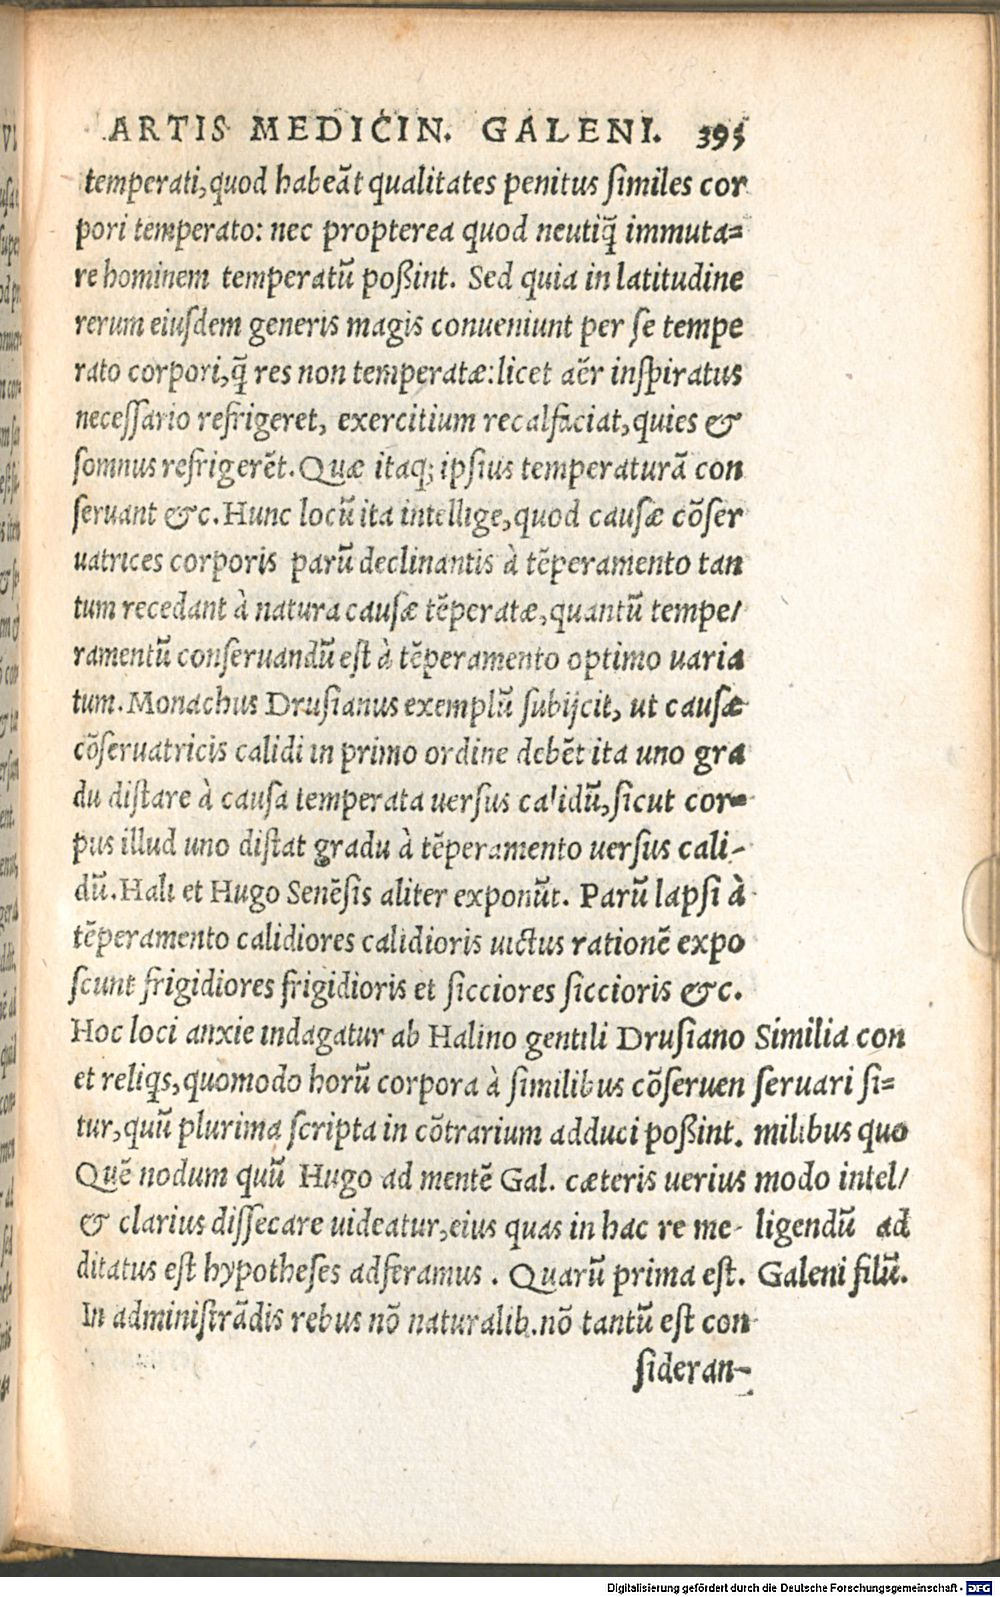 ARTIS MEDICIN. GALENI. 395
temperati, quod habeāt qualitates penitus ſimiles cor
pori temperato: nec propterea quod neutiq̃ immuta=
re hominem temperatũ poßint. Sed quia in latitudine
rerum eiuſdem generis magis conueniunt per ſe tempe
rato corpori, q̃ res non temperatæ: licet aër inſpiratus
neceſſario refrigeret, exercitium recalfaciat, quies &
ſomnus refrigerēt. Quæ itaq; ipſius temperaturā con
ſeruant &c. Hunc locũ ita intellige, quod cauſæ cōſer
uatrices corporis parũ declinantis à tēperamento tan
tum recedant à natura cauſæ tēperatæ, quantũ tempe/
ramentũ conſeruandũ eſt à tēperamento optimo uaria
tum. Monachus Druſianus exemplũ ſubijcit, ut cauſæ
cōſeruatricis calidi in primo ordine debēt ita uno gra
du diſtare à cauſa temperata uerſus calidũ, ſicut cor=
pus illud uno diſtat gradu à tēperamento uerſus cali-
dũ. Hali et Hugo Senēſis aliter exponũt. Parũ lapſi à
tēperamento calidiores calidioris uictus rationē expo
ſcunt frigidiores frigidioris et ſicciores ſiccioris &c.
Hoc loci anxie indagatur ab Halino gentili Druſiano
et reliqs, quomodo horũ corpora à ſimilibus cōſeruen
tur, quũ plurima ſcripta in cōtrarium adduci poßint.
Quē nodum quũ Hugo ad mentē Gal. cæteris uerius
& clarius diſſecare uideatur, eius quas in hac re me-
ditatus eſt hypotheſes adferamus. Quarũ prima eſt.
In adminiſtrādis rebus nō naturalib. nō tantũ eſt con
ſideran-
Similia con
ſeruari ſi=
milibus quo
modo intel/
ligendũ ad
Galeni filũ.
Digitalisierung gefördert durch die Deutsche Forschungsgemeinschaft - DFG